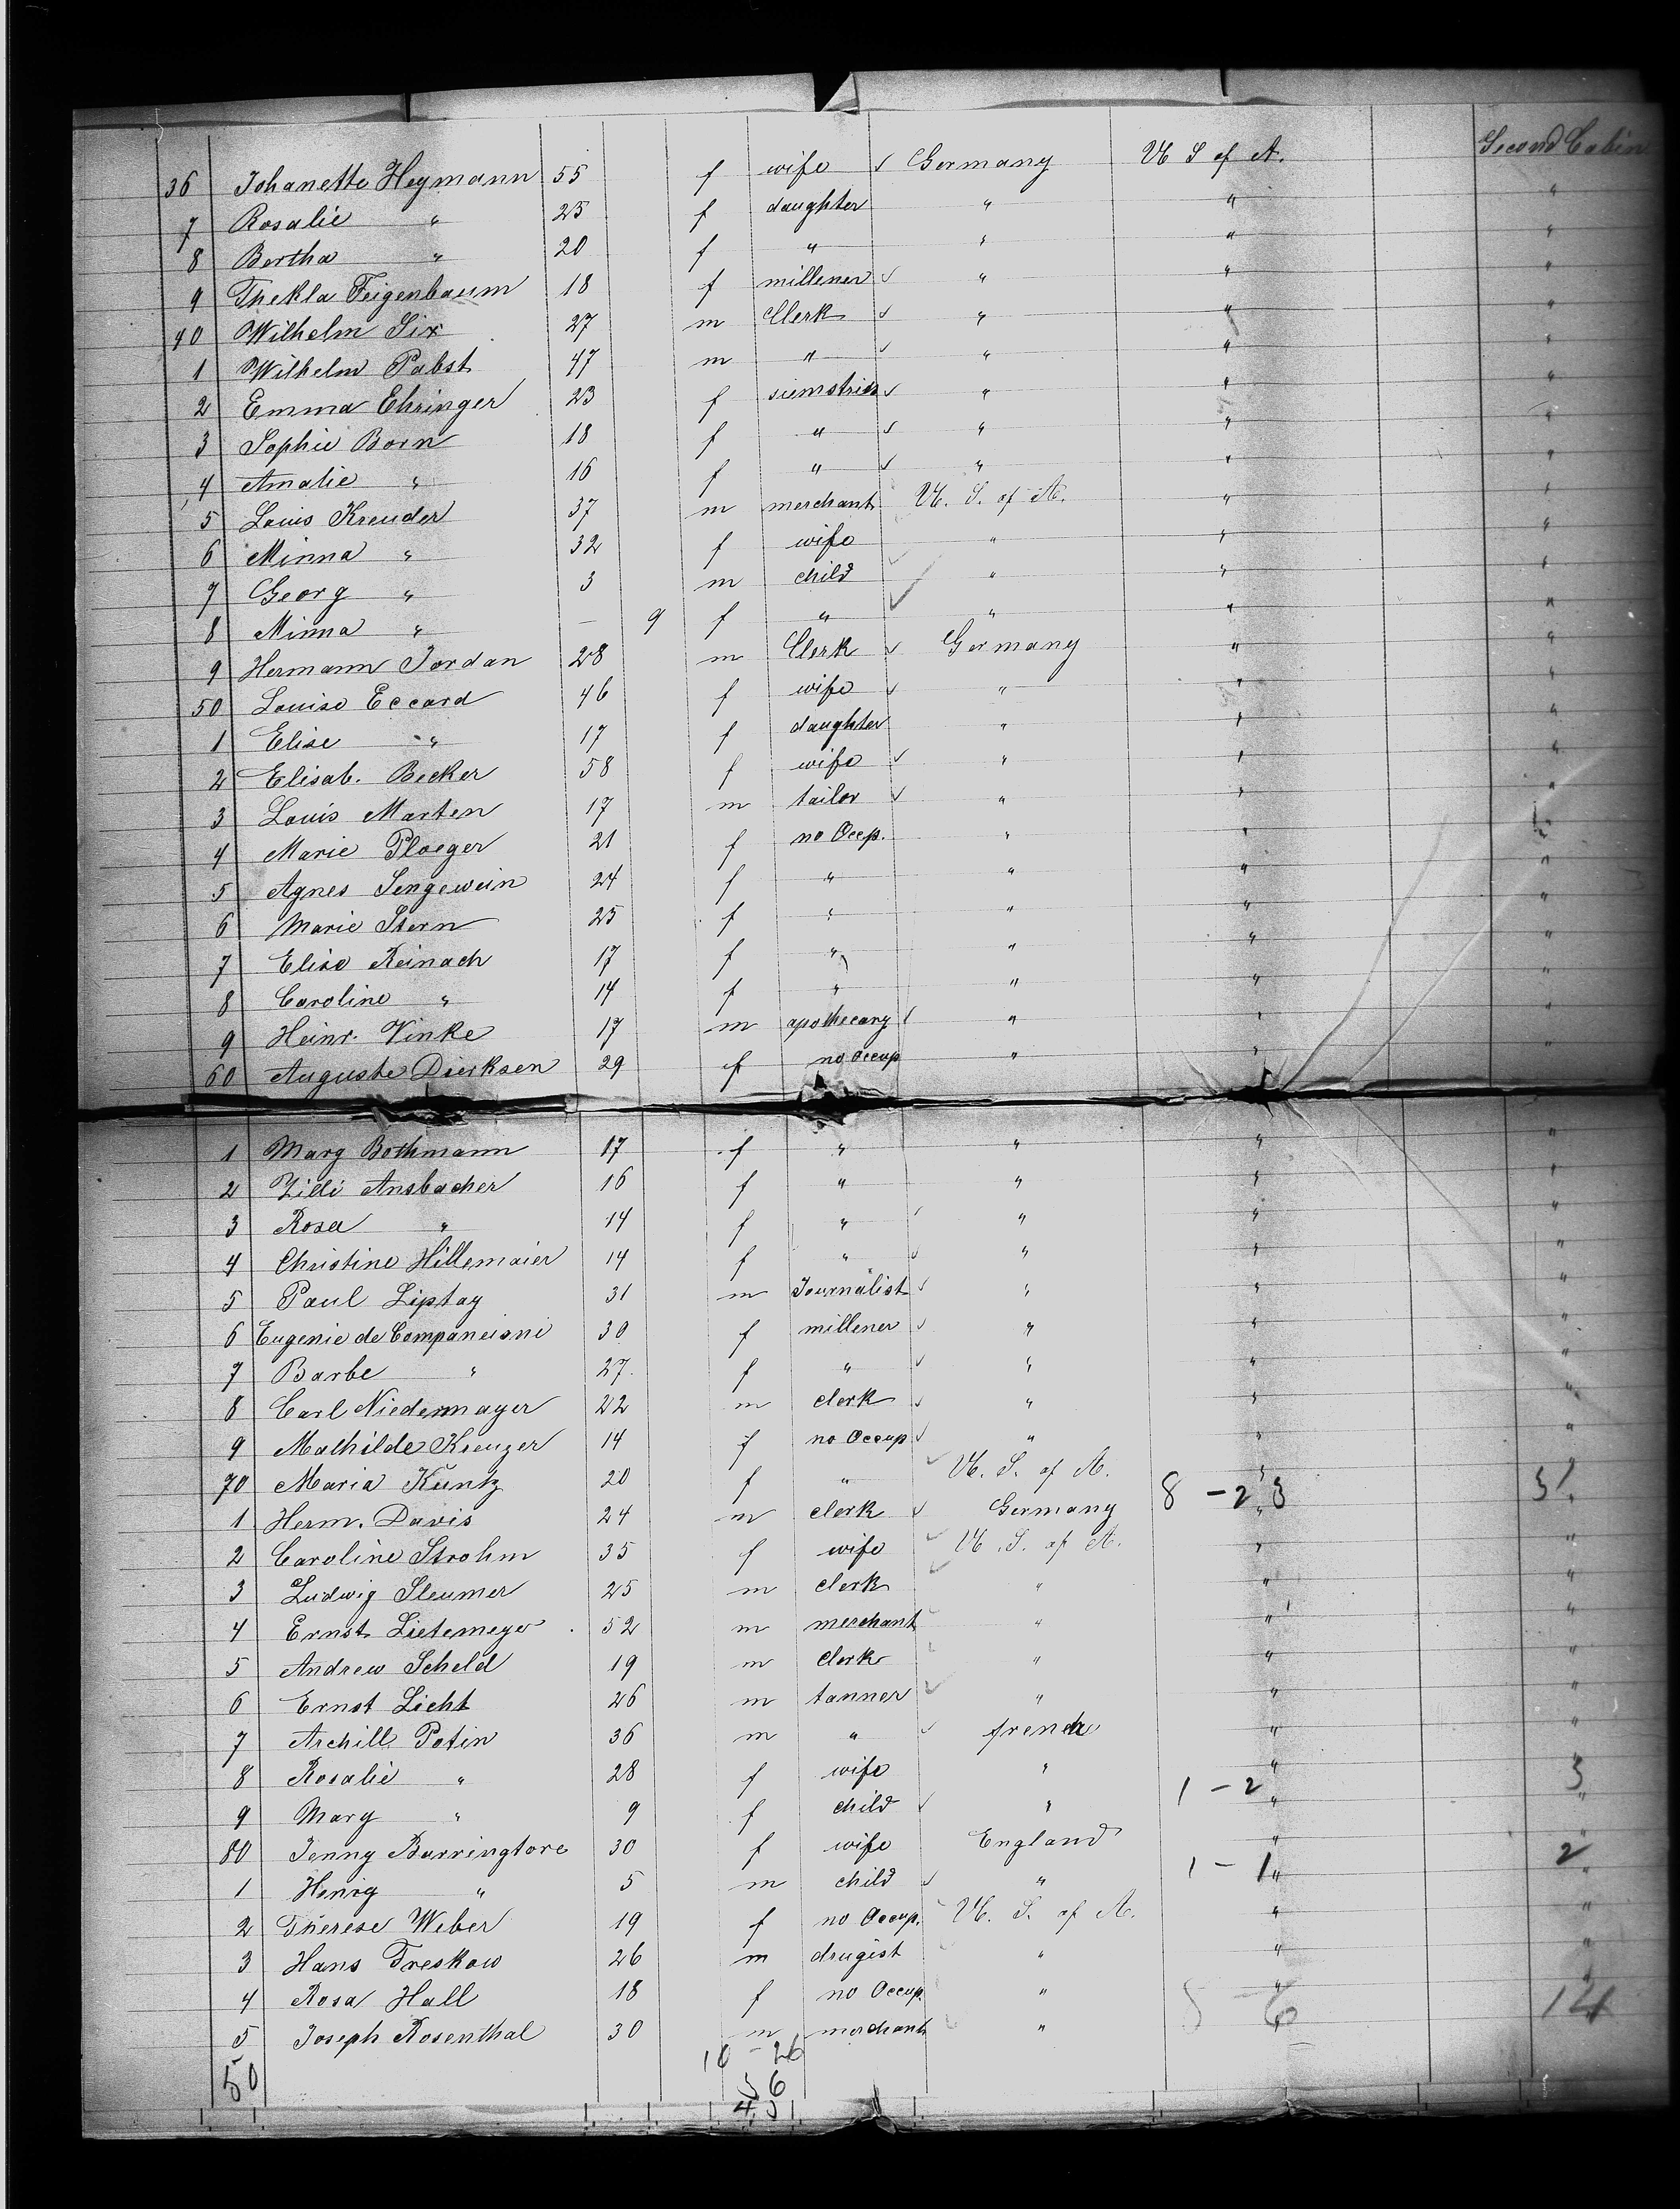 36 Johanette Heymann 55 f wife ✓ Germany U S of A. Second Cabin
7 Rosalie " 25 f daughter " " "
8 Bertha " 20 f " " " "
9 Thekla Feigenbaum 18 f millener ✓ " " "
40 Wilhelm Six 27 m Clerk ✓ " " "
1 Wilhelm Pabst 47 m " ✓ " " "
2 Emma Ehringer 23 f siemstriss ✓ " " "
3 Sophie Born 18 f " ✓ " " "
4 Amalie " 16 f " ✓ " " "
5 Louis Kreuder 37 m merchant U. S. of A. " "
6 Minna " 32 f wife " " "
7 Georg " 3 m child " " "
8 Minna " — 9 f " ✓ " " "
9 Hermann Jordan 28 m Clerk ✓ Germany " "
50 Louise Eccard 46 f wife ✓ " " "
1 Elise " 17 f daughter " " "
2 Elisab. Becker 58 f wife ✓ " " "
3 Louis Marten 17 m tailor ✓ " " "
4 Marie Ploeger 21 f no Occp. " " "
5 Agnes Sengewein 24 f " " " "
6 Marie Stern 25 f " " " "
7 Elise Reinach 17 f " " " "
8 Caroline " 14 f " " " "
9 Heinr. Vinke 17 m apothecary ✓ " " "
60 Auguste Dierksen 29 f no Occup " " "
1 Marg Bothmann 17 f " " " "
2 Zilli Ansbacher 16 f " " " "
3 Rosa " 14 f " ✓ " " "
4 Christine Hillemaier 14 f " ✓ " " "
5 Paul Liptay 31 m Journalist ✓ " " "
6 Eugenie de Companeisni 30 f millener ✓ " " "
7 Barbe " 27. f " ✓ " " "
8 Carl Niedermayer 22 m clerk ✓ " " "
9 Mathilde Kreuzer 14 f no Occup ✓ " " "
70 Maria Kuntz 20 f " ✓ U. S. of A. " "
1 Herm. Davis 24 m clerk ✓ Germany 8 - 23 " 31
2 Caroline Strohm 35 f wife ✓ U. S. of A. " "
3 Ludwig Sleumer 25 m clerk ✓ " " "
4 Ernst Lietemeyer 52 m merchant " " "
5 Andrew Scheld 19 m Clerk " " "
6 Ernst Licht 26 m tanner ✓ " " "
7 Archill Potin 36 m " ✓ french " "
8 Rosalie " 28 f wife " " "
9 Mary " 9 f child ✓ " 1 - 2 " 3
80 Jenny Barringtore 30 f wife England " "
1 Henry " 5 m child ✓ " 1 - 1 " 2
2 Therese Weber 19 f no Occup. U. S. of A. " "
3 Hans Treskow 26 m drugist " " "
4 Rosa Hall 18 f no Occup. " " "
5 Joseph Rosenthal 30 m merchant " 8 - 6 14
50 10 - 26
56
45